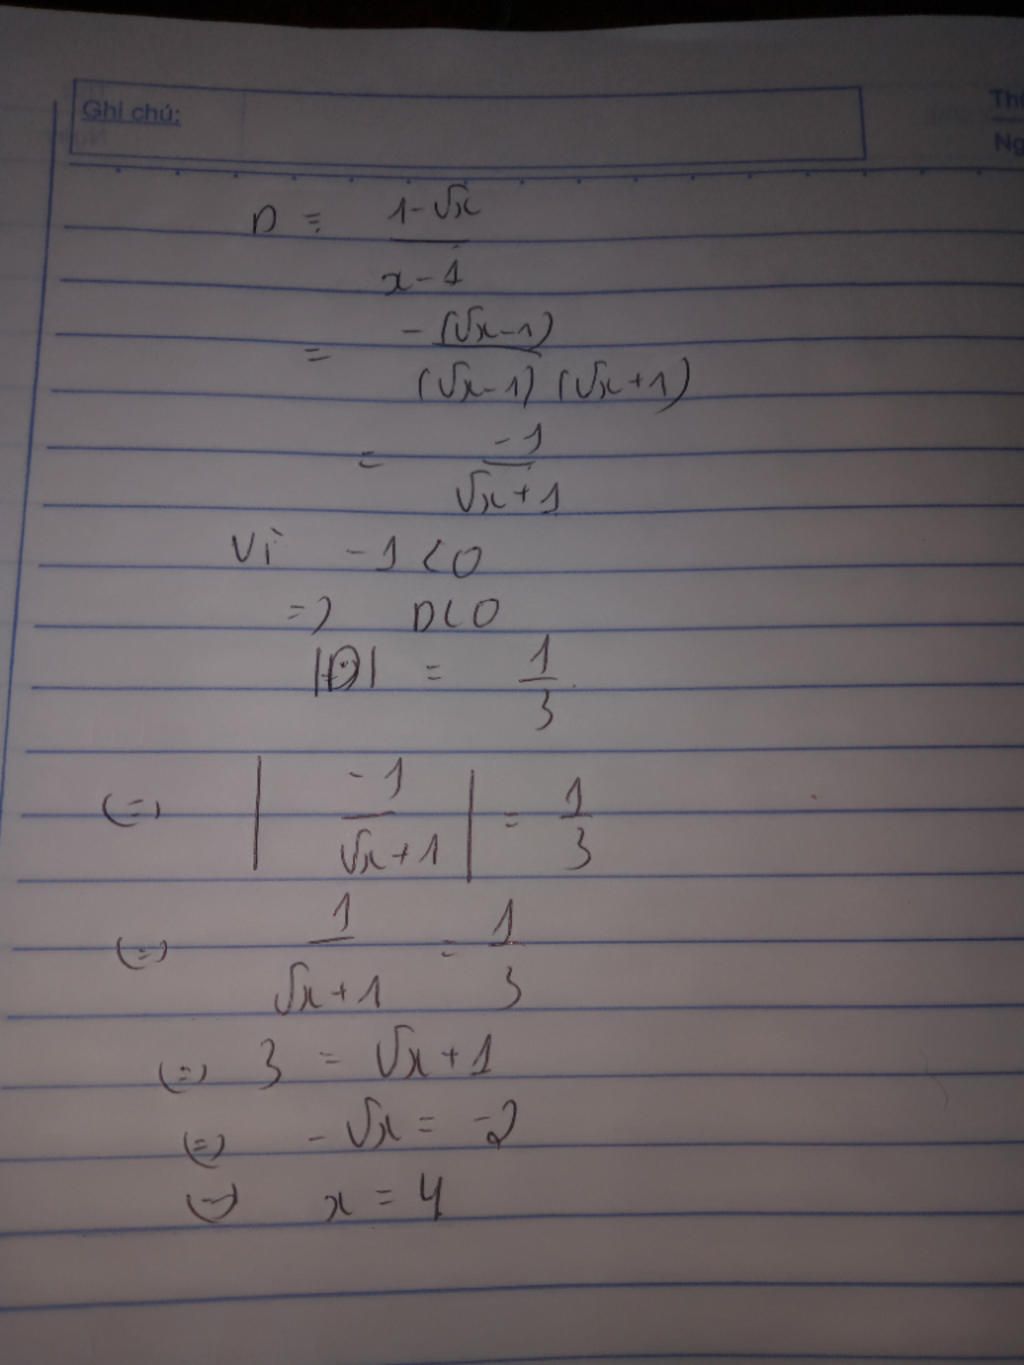 Ghi chú:
Th
Ng
D = 1-√x
x-1
= -(√x-1)
(√x-1) (√x+1)
= -1
√x+1
Vì -1<0
=> D<0
|D| = 1
3
(=) | -1 | = 1
√x+1 3
(=) 1 = 1
√x+1 3
(=) 3 = √x+1
(=) -√x = -2
(=) x = 4